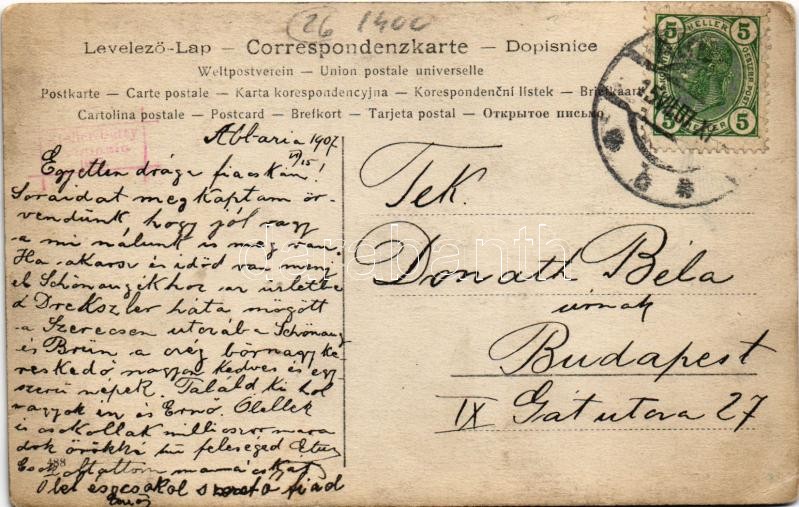 26 1400
Levelező-Lap – Correspondenzkarte – Dopisnice
Weltpostverein – Union postale universelle
Postkarte – Carte postale – Karta korespondencyjna – Korespondenční lístek – Briefkaart
Cartolina postale – Postcard – Brefkort – Tarjeta postal – Открытое письмо
5 HELLER 5
5 HELLER 5
Abbazia 1907
VI/15
Egyetlen drága fiacskám!
Soraidat megkaptam ör-
vendünk hogy jól vagy
a mi nálunk is meg van.
Ha akarsz és időd van menj
el Schönaugékhoz az üzletbe
a Drekszler háta mögött
a Szerecsen utczába Schönaug
és Brün a czég bőrnagyke
reskedő nagyon kedves és egy
szerü népek. Találd ki hol
vagyok én és Ernő. Ölellek
és csokollak milliószor mara
dok örökké hű feleséged Etus
mamácskát
Ölel és csokol szerető fiad
Ernő
488
Tek.
Donáth Béla
úrnak
Budapest
IX Gát utcza 27
darabanth